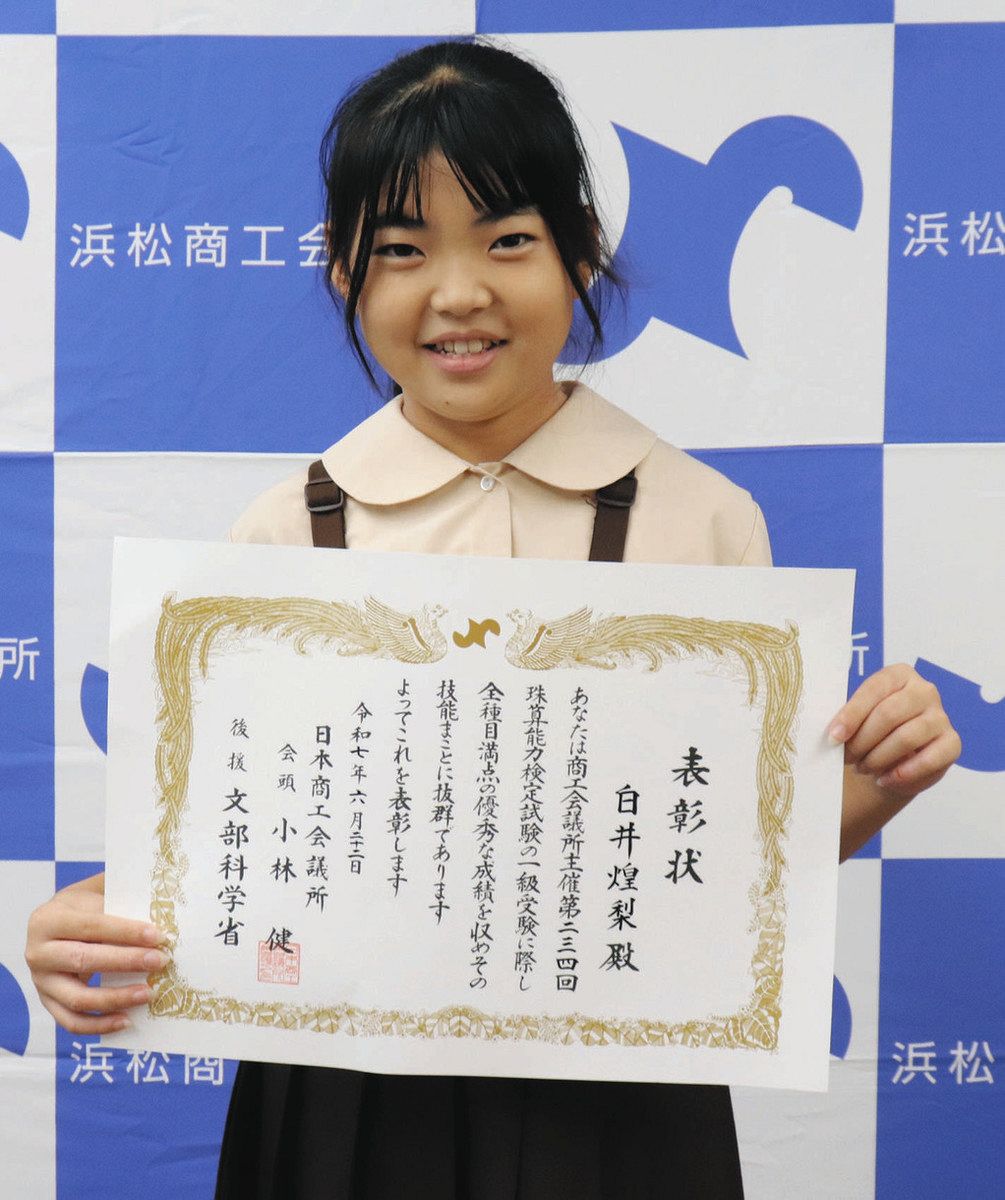 表彰状
白井煌梨殿
あなたは商工会議所主催第二三四回
珠算能力検定試験の一級受験に際し
全種目満点の優秀な成績を収めその
技能まことに抜群であります
よってこれを表彰します
令和七年六月二十二日
日本商工会議所
会頭 小林 健
後援 文部科学省
浜松商工会
浜松
所
所
浜松商
浜松